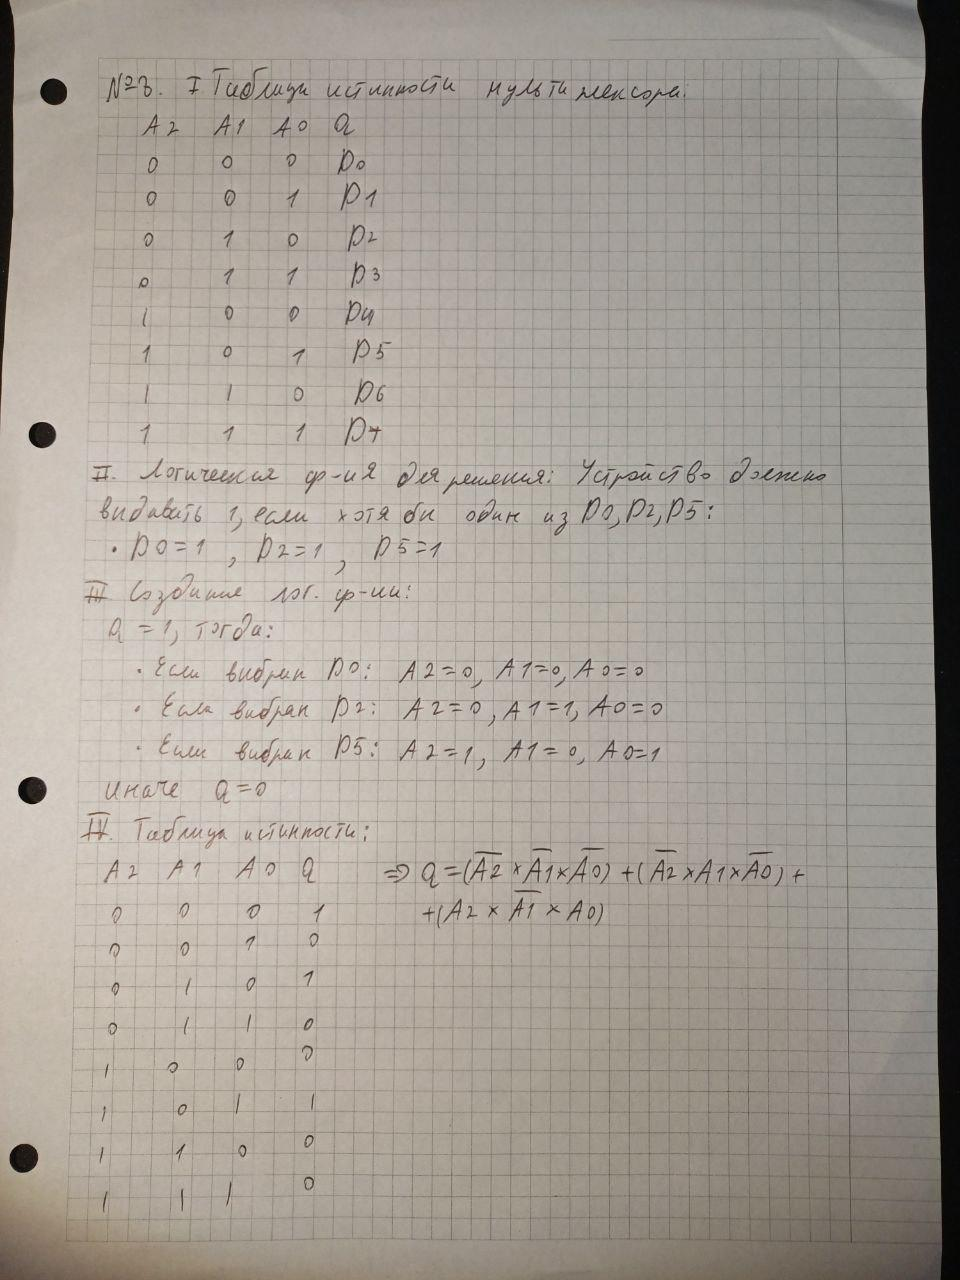 №3. I Таблица истинности мультиплексора:
A2 A1 A0 Q
0 0 0 D0
0 0 1 D1
0 1 0 D2
0 1 1 D3
1 0 0 D4
1 0 1 D5
1 1 0 D6
1 1 1 D7
II. Логическая ф-ия для решения: Устройство должно
выдавать 1, если хотя бы один из D0, D2, D5:
• D0=1, D2=1, D5=1
III Создание лог. ф-ии:
Q=1, тогда:
• Если выбран D0: A2=0, A1=0, A0=0
• Если выбран D2: A2=0, A1=1, A0=0
• Если выбран D5: A2=1, A1=0, A0=1
иначе Q=0
IV. Таблица истинности:
A2 A1 A0 Q ⇒ Q=(A̅2̅×A̅1̅×A̅0̅)+(A̅2̅×A1×A̅0̅)+
0 0 0 1 +(A2×A̅1̅×A0)
0 0 1 0
0 1 0 1
0 1 1 0
1 0 0 0
1 0 1 1
1 1 0 0
1 1 1 0